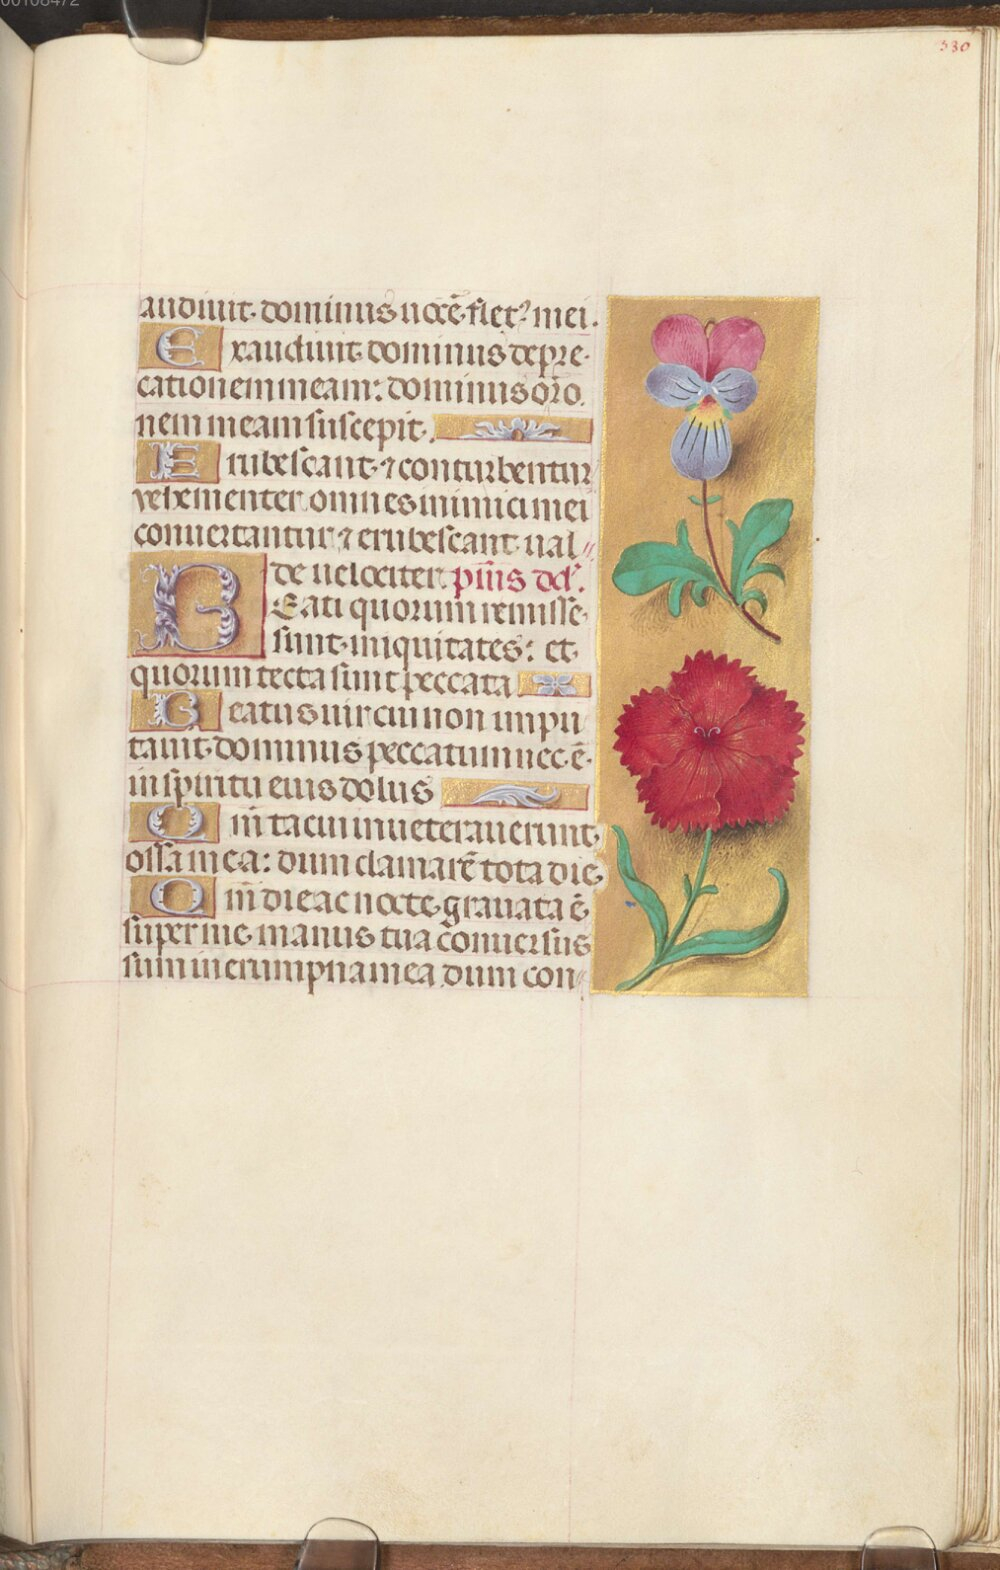 00108472
330
audiuit dominus uocē flet᷒ mei.
Exaudiuit dominus depre
cationem meam: dominus orō
nem meam suscepit.
Erubescant ⁊ conturbentur
vehementer omnes inimici mei
conuertantur ⁊ erubescant ual
de uelociter. psm̄s dd.
Beati quorum remisse
sunt iniquitates: et
quorum tecta sunt peccata
Beatus uir cui non impu
tauit dominus peccatum nec ē
in spiritu eius dolus
Qm̄ tacui inueterauerunt
ossa mea: dum clamarē tota die
Qm̄ die ac nocte grauata ē
super me manus tua conuersus
sum in erumpna mea dum con